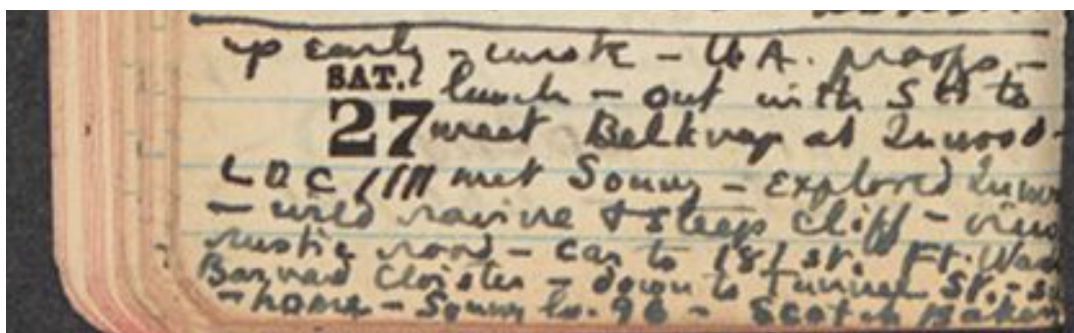 up early – wrote – U.A. proofs –
SAT.
lunch – out with SH to
27 meet Belknap at Inwood –
met Sonny – explored
– wild ravine & steep cliff –
rustic road – car to 181 st. Ft.
Barnard Cloister – down to St. –
– home – Sonny lv. 96 – Scotch